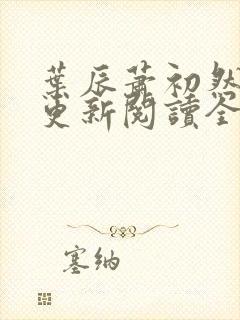 葉辰蕭初然
更新閱讀全
塞納